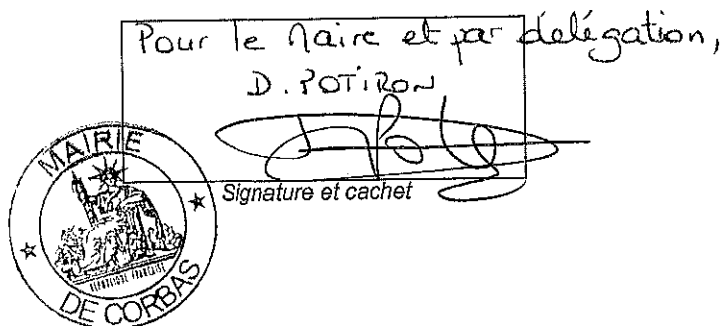 Pour le Maire et par délégation,
D. POTIRON
Signature et cachet
MAIRIE
DE CORBAS
RÉPUBLIQUE FRANÇAISE